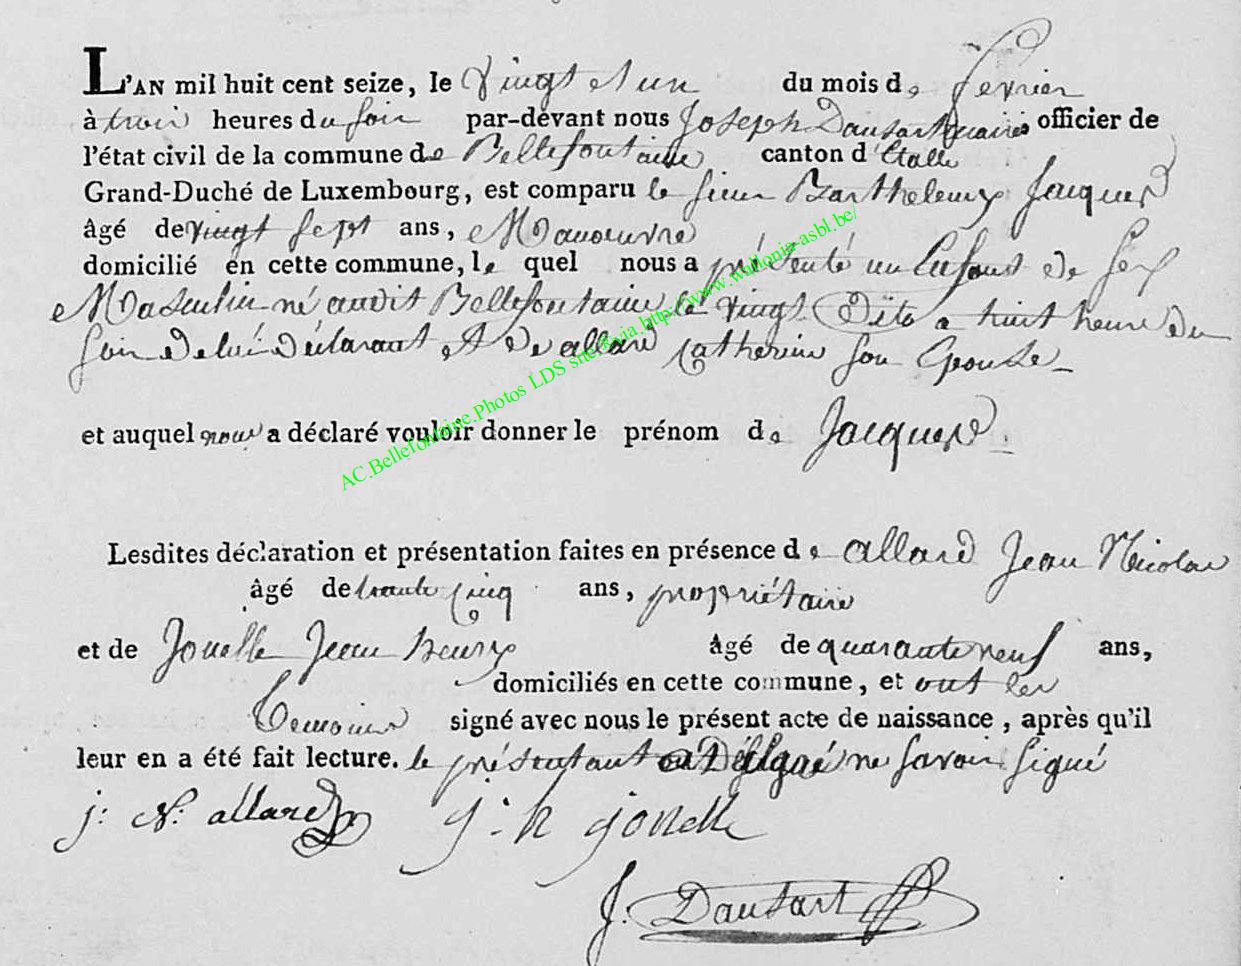 L'AN mil huit cent seize, le Vingt et un du mois de fevrier
à trois heures du soir par-devant nous Joseph Dausart maire officier de
l'état civil de la commune de Bellefontaine canton d'Etalle
Grand-Duché de Luxembourg, est comparu le sieur Barthelemy Jacques
âgé de vingt sept ans, Manoeuvre
domicilié en cette commune, le quel nous a présenté un Enfant de sex
Masculin né audit Bellefontaine le vingt Dito a huit heure du
soir de lui déclarant et de allard catherine son Epouse
et auquel nous a déclaré vouloir donner le prénom de Jacques
Lesdites déclaration et présentation faites en présence de allard Jean Nicolas
âgé de trente cinq ans, propriétaire
et de Jouelle Jean henry âgé de quarante neuf ans,
domiciliés en cette commune, et ont les
temoins signé avec nous le présent acte de naissance, après qu'il
leur en a été fait lecture. le présentant ne savoir signé
j: N: allard j-h jouelle
J: Dausart
AC.Bellefontaine.Photos LDS site http://www.wallonia-asbl.be/